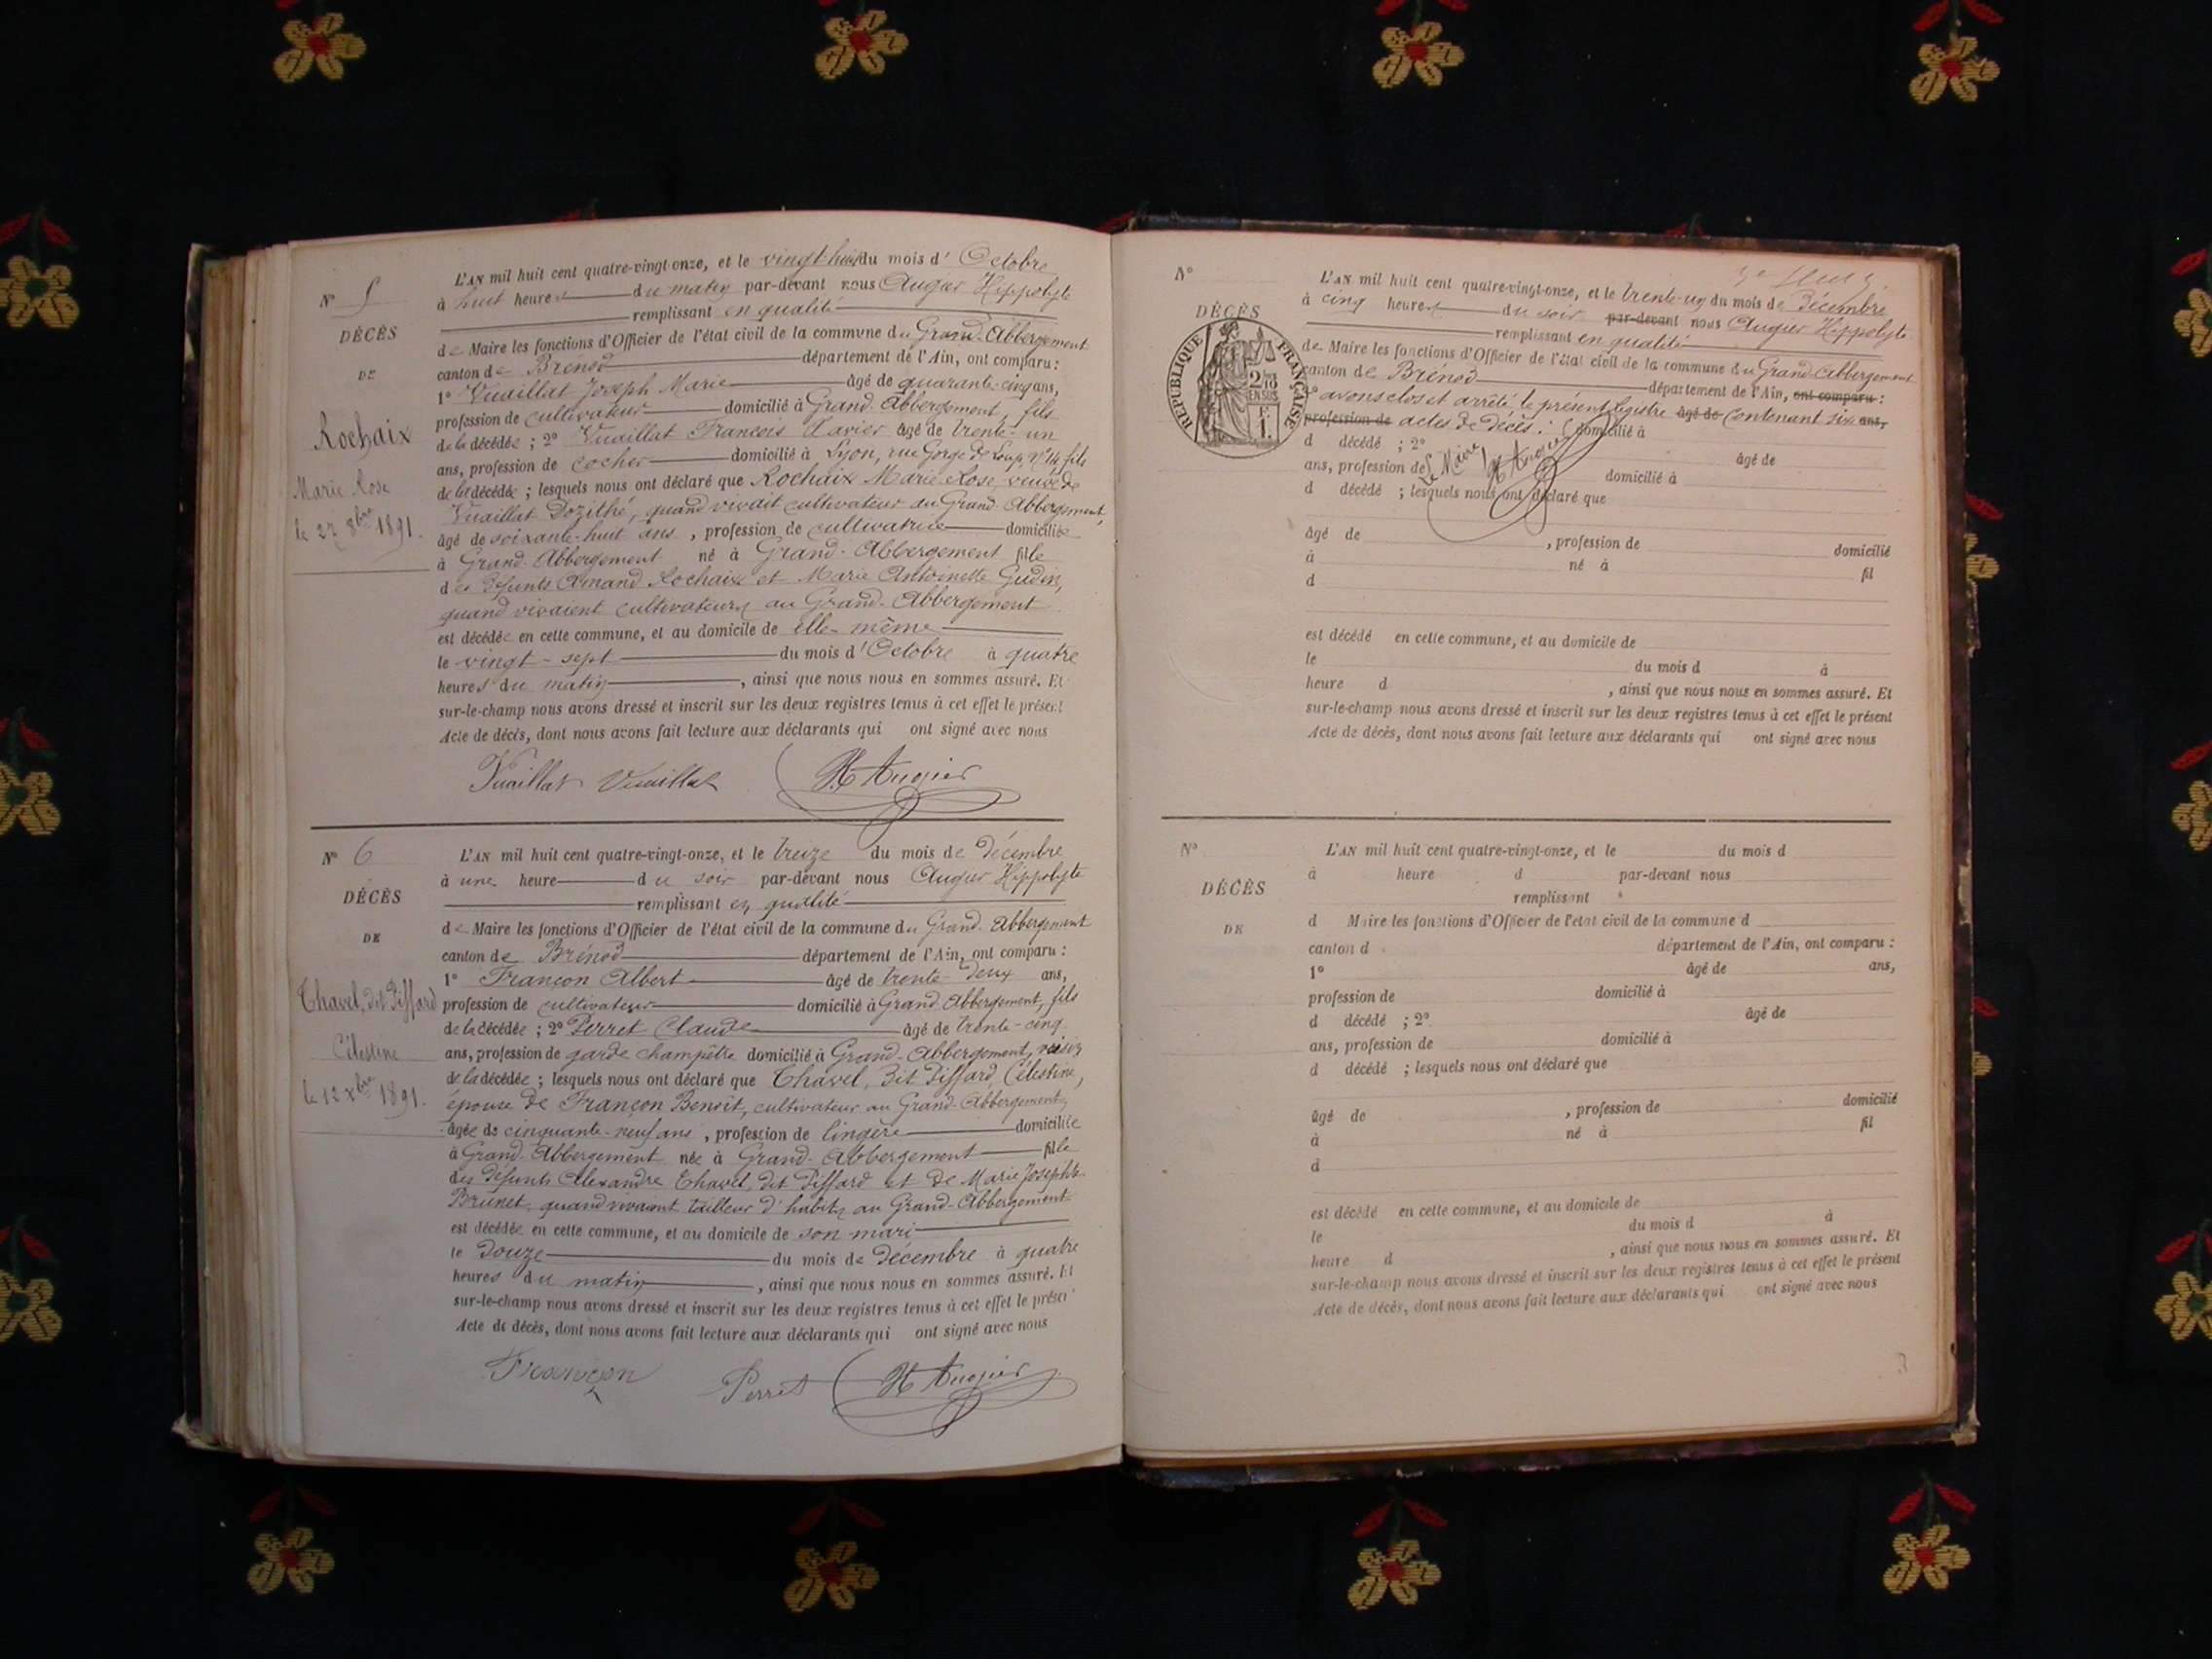 L'AN mil huit cent quatre-vingt-onze, et le vingt-huit du mois d'Octobre
N° 5
à huit heures du matin par-devant nous Augier Hippolyte
remplissant en qualité
DÉCÈS
de Maire les fonctions d'Officier de l'état civil de la commune du Grand-Abbergement
canton de Brénod département de l'Ain, ont comparu :
DE
1° Vuaillat Joseph Marie âgé de quarante-cinq ans,
profession de cultivateur domicilié à Grand-Abbergement, fils
Rochaix
de la décédée ; 2° Vuaillat François Xavier âgé de trente-un
ans, profession de cocher domicilié à Lyon, rue Gorge de Loup, N° 14, fils
Marie Rose
de la décédée ; lesquels nous ont déclaré que Rochaix Marie Rose, veuve de
Vuaillat Dozithé, quand vivait cultivateur au Grand-Abbergement,
le 27 8bre 1891.
âgé de soixante-huit ans, profession de cultivatrice domiciliée
à Grand-Abbergement né à Grand-Abbergement fille
des défunts Amand Rochaix et Marie Antoinette Gudin,
quand vivaient cultivateurs au Grand-Abbergement
est décédée en cette commune, et au domicile de elle-même
le vingt-sept du mois d'Octobre à quatre
heures du matin, ainsi que nous nous en sommes assuré. Et
sur-le-champ nous avons dressé et inscrit sur les deux registres tenus à cet effet le présent
Acte de décès, dont nous avons fait lecture aux déclarants qui ont signé avec nous
Vuaillat Vuaillat H Augier
N° 6
L'AN mil huit cent quatre-vingt-onze, et le treize du mois de Décembre
à une heure du soir par-devant nous Augier Hippolyte
DÉCÈS
remplissant en qualité
de Maire les fonctions d'Officier de l'état civil de la commune du Grand-Abbergement
DE
canton de Brénod département de l'Ain, ont comparu :
1° Françon Albert âgé de trente-deux ans,
Chavel, dit Piffard
profession de cultivateur domicilié à Grand-Abbergement, fils
de la décédée ; 2° Perret Claude âgé de trente-cinq
Célestine
ans, profession de garde champêtre domicilié à Grand-Abbergement, voisin
de la décédée ; lesquels nous ont déclaré que Chavel, dit Piffard, Célestine,
le 12 xbre 1891.
épouse de Françon Benoît, cultivateur au Grand-Abbergement,
âgée de cinquante-neuf ans, profession de lingère domiciliée
à Grand-Abbergement née à Grand-Abbergement fille
des défunts Alexandre Chavel, dit Piffard et de Marie Josephte
Brunet, quand vivaient tailleur d'habits au Grand-Abbergement
est décédée en cette commune, et au domicile de son mari
le douze du mois de Décembre à quatre
heures du matin, ainsi que nous nous en sommes assuré. Et
sur-le-champ nous avons dressé et inscrit sur les deux registres tenus à cet effet le présent
Acte de décès, dont nous avons fait lecture aux déclarants qui ont signé avec nous
Françon Perret H Augier
N°
L'AN mil huit cent quatre-vingt-onze, et le trente-un du mois de Décembre
à cinq heures du soir par-devant nous Augier Hippolyte
DÉCÈS
remplissant en qualité
de Maire les fonctions d'Officier de l'état civil de la commune du Grand-Abbergement
RÉPUBLIQUE FRANÇAISE
2/10 EN SUS
1 F.
canton de Brénod département de l'Ain, ont comparu :
1° avons clos et arrêté le présent registre âgé de contenant six ans,
profession de actes de décès. domicilié à
d décédé ; 2° âgé de
ans, profession de Le Maire H Augier domicilié à
d décédé ; lesquels nous ont déclaré que
âgé de , profession de domicilié
à né à fil
d
est décédé en cette commune, et au domicile de
le du mois d à
heure d , ainsi que nous nous en sommes assuré. Et
sur-le-champ nous avons dressé et inscrit sur les deux registres tenus à cet effet le présent
Acte de décès, dont nous avons fait lecture aux déclarants qui ont signé avec nous
N°
L'AN mil huit cent quatre-vingt-onze, et le du mois d
à heure d par-devant nous
DÉCÈS
remplissant
d Maire les fonctions d'Officier de l'état civil de la commune d
DE
canton d département de l'Ain, ont comparu :
1° âgé de ans,
profession de domicilié à
d décédé ; 2° âgé de
ans, profession de domicilié à
d décédé ; lesquels nous ont déclaré que
âgé de , profession de domicilié
à né à fil
d
est décédé en cette commune, et au domicile de
le du mois d à
heure d , ainsi que nous nous en sommes assuré. Et
sur-le-champ nous avons dressé et inscrit sur les deux registres tenus à cet effet le présent
Acte de décès, dont nous avons fait lecture aux déclarants qui ont signé avec nous